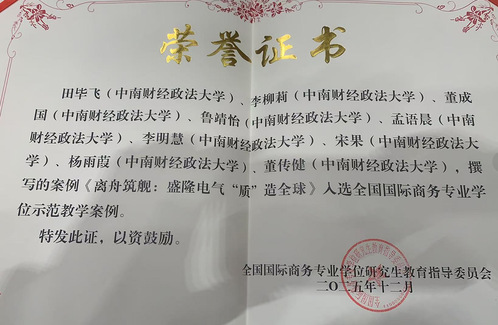 荣誉证书
田毕飞（中南财经政法大学）、李柳莉（中南财经政法大学）、董成
国（中南财经政法大学）、鲁靖怡（中南财经政法大学）、孟语晨（中南
财经政法大学）、李明慧（中南财经政法大学）、宋果（中南财经政法大
学）、杨雨葭（中南财经政法大学）、董传健（中南财经政法大学），撰
写的案例《离舟筑舰：盛隆电气“质”造全球》入选全国国际商务专业学
位示范教学案例。
特发此证，以资鼓励。
全国国际商务专业学位研究生教育指导委员会
二〇二五年十二月